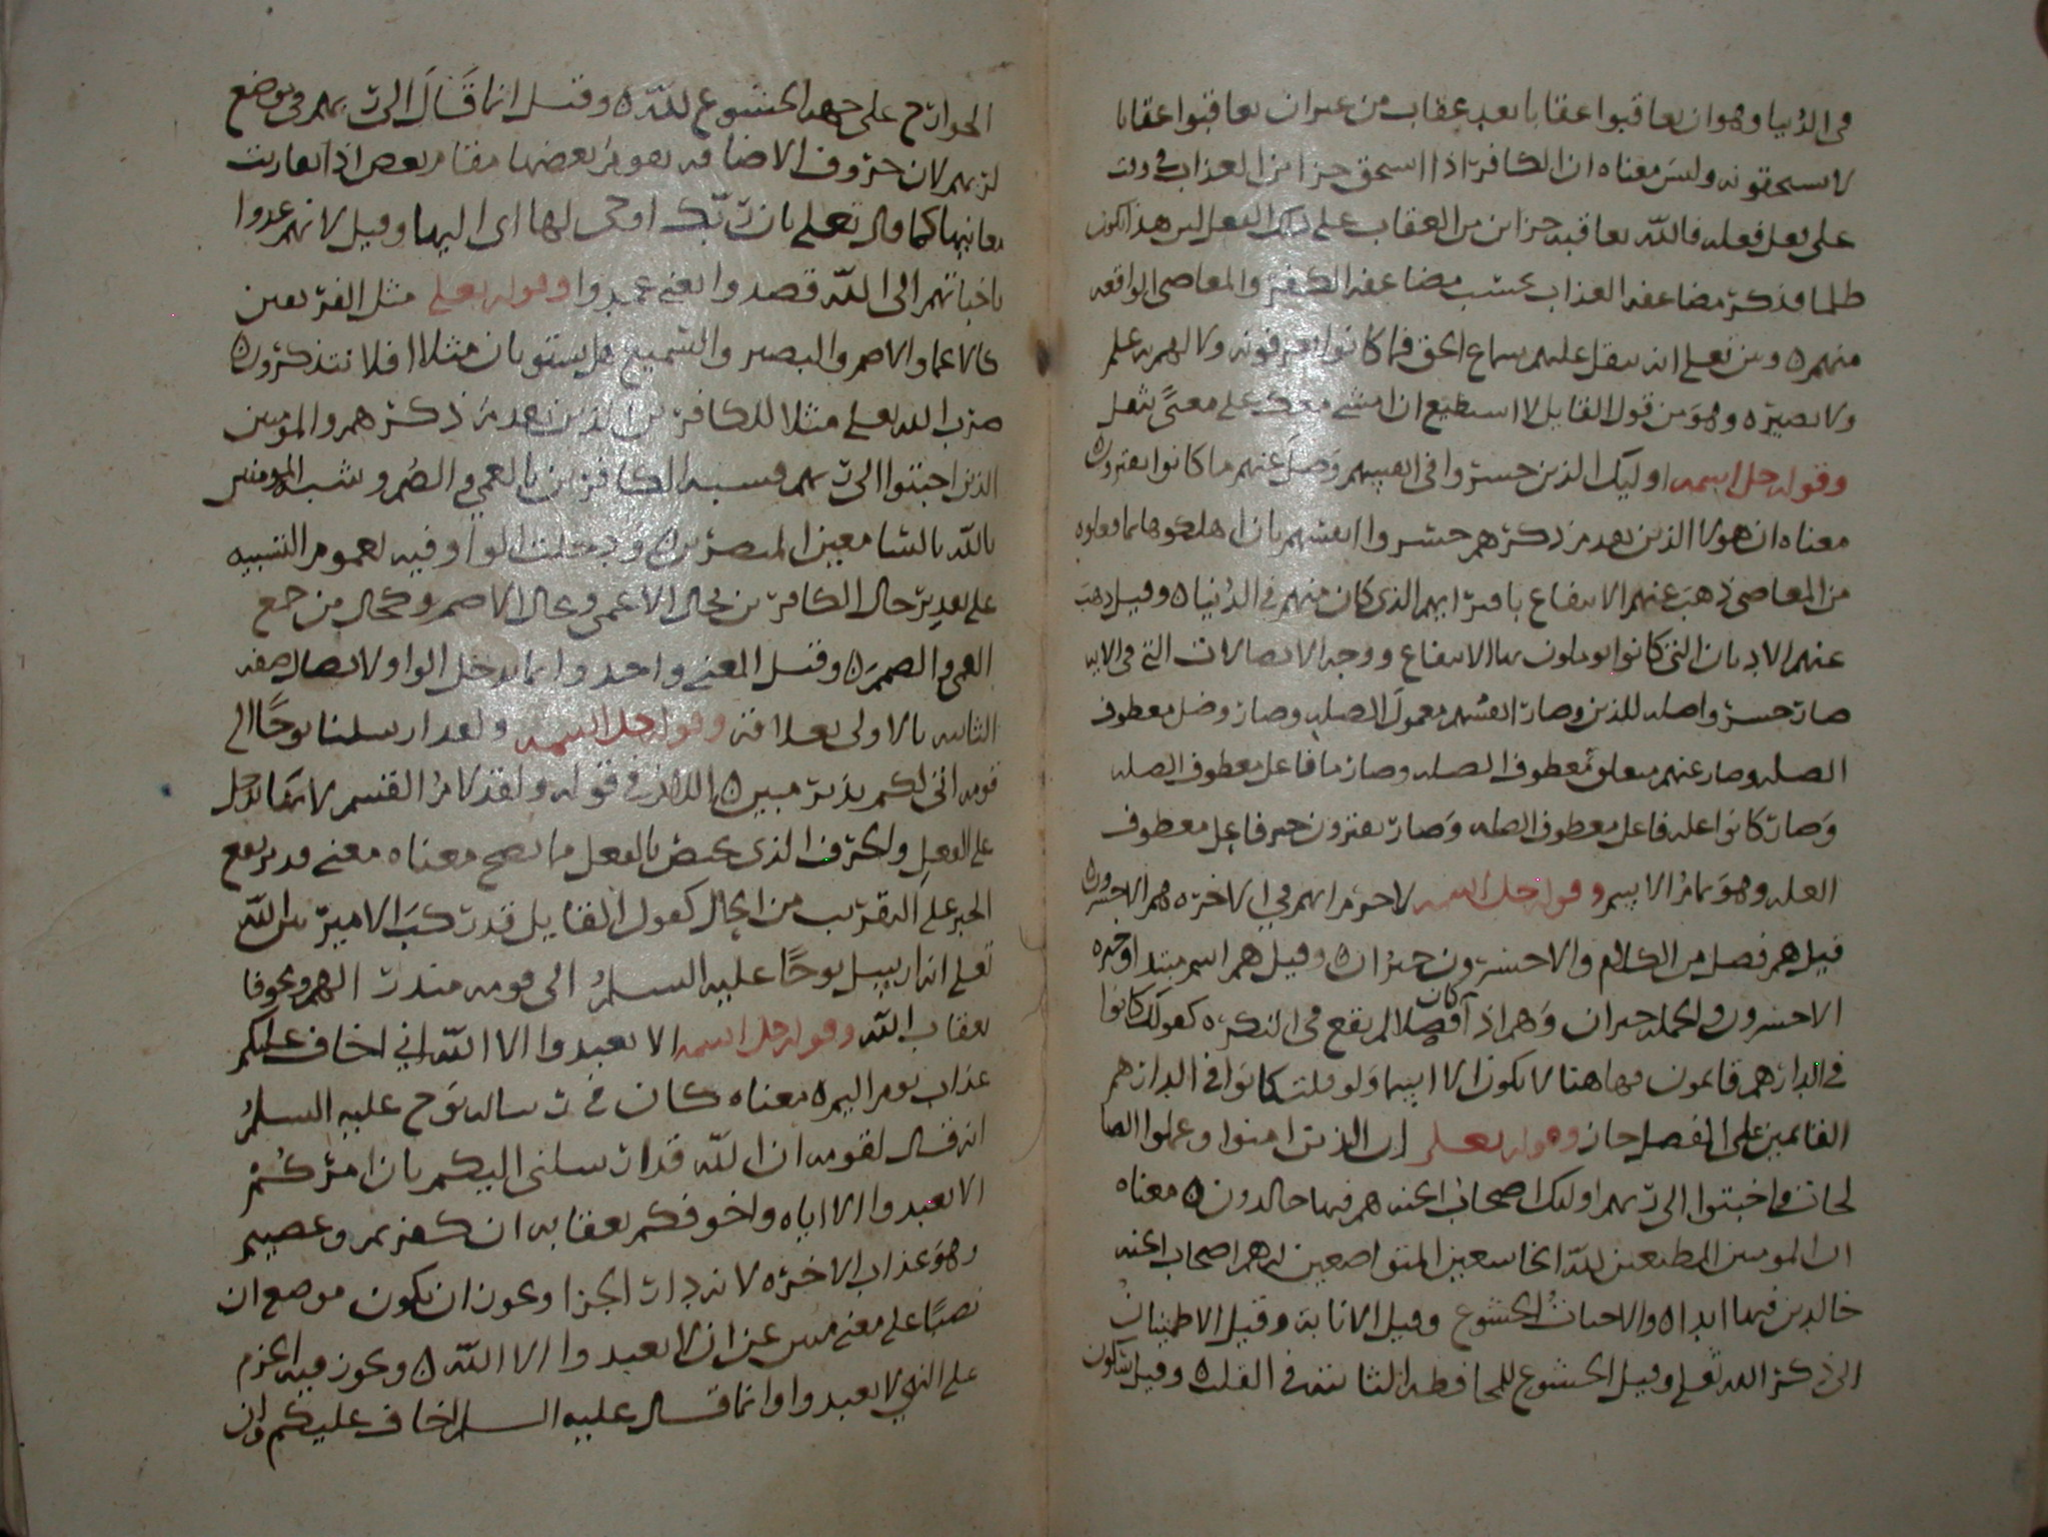 في الدنيا وهو ان يعاقبوا عقابا بعد عقاب من غير ان يعاقبوا عقابا
لا يستحقونه وليس معناه ان الكافر اذا استحق جزا من العذاب في وقت
على فعل فعله فالله يعاقبه جزاين من العقاب على ذلك الفعل ليس هذا لكون
ظلما فذكر مضاعفه العذاب بحسب مضاعفه الكفر والمعاصي الواقعه
منهم ه وبين تعلى انه يثقل عليهم سماع الحق فما كانوا يعرفونه ولا لهم به علم
ولا بصيره وهو من قول القايل لا استطيع ان امشي معك على معنى يثقل
وقوله جل اسمه اوليك الذين خسروا انفسهم وضل عنهم ما كانوا يفترون
معناه ان هولا الذين تقدم ذكرهم خسروا انفسهم بان اهلكوها بما فعلوه
من المعاصي ذهب عنهم الانتفاع بافترايهم الذي كان منهم في الدنيا ه وقيل ذهب
عنهم الاديان التي كانوا يوملون بها الانتفاع ووجه الاتصالات التي في الايه
صار خسروا صله للذين وصار انفسهم معمول الصله وصار وضل معطوف
الصله وصار عنهم متعلق معطوف الصله وصار ما فاعل معطوف الصله
وصار كانوا صله فاعل معطوف الصله وصار يفترون خبر فاعل معطوف
الصله وهو تمام الاسم وقوله جل اسمه لا جرم انهم في الاخره هم الاخسرون
قيل هم فصل من الكلام والاخسرون خبر ان ه وقيل هم اسم مبتدا وخبره
الاخسرون والجمله خبر ان وهم اذا كان فصلا لم يقع في النكره كقولك كانوا
في الدار هم قايمون فها هنا لا يكون الا اسما ولو قلت كانوا في الدار هم
القايمين على الفصل جاز وقوله تعلى ان الذين امنوا وعملوا الصا
لحات واخبتوا الى ربهم اوليك اصحاب الجنه هم فيها خالدون ه معناه
ان المومنين المطيعين لله الخاشعين المتواضعين له هم اصحاب الجنه
خالدين فيها ابدا ه والاخبات الخشوع وقيل الانابة وقيل الاطمينان
الى ذكر الله تعلى وقيل الخشوع للمخافه الثابته في القلب ه وقيل سكون
الجوارح على جهه الخشوع لله ه وقيل انما قال الى ربهم في موضع
لربهم لان حروف الاضافه يقوم بعضها مقام بعض اذا تقاربت
معانيها كما قال تعلى بان ربك اوحى لها اى اليها وقيل لانهم عمدوا
باخباتهم الى الله قصدوا يعني عمدوا وقوله تعلى مثل الفريقين
كالاعما والاصم والبصير والسميع هل يستويان مثلا افلا تتذكرون ه
ضرب الله تعلى مثلا للكافرين الذين تقدم ذكرهم والمومنين
الذين اخبتوا الى ربهم فشبه الكافرين بالعمي والصم وشبه المومنين
بالله بالسامعين المبصرين ه ودخلت الواو فيه لعموم التشبيه
على تقدير حال الكافرين كحال الاعمى وحال الاصم وكحال من جمع
العمى والصمم ه وقيل المعنى واحد وانما دخل الواو لاتصال صفه
الثانيه بالاولى وقوله جل اسمه ولقد ارسلنا نوحا الى
قومه اني لكم نذير مبين ه اللام في قوله ولقد لام القسم لانها تدخل
على الفعل والحرف الذي يختص بالفعل مما يصح معناه معنى قد توقع
الخبر على التقريب من الحال كقول القايل قد ركب الامير بين الله
تعلى انه ارسل نوحا عليه السلام الى قومه منذرا لهم ومخوفا
بعقاب الله وقوله جل اسمه الا تعبدوا الا الله اني اخاف عليكم
عذاب يوم اليم ه معناه كان في رساله نوح عليه السلام
انه قال لقومه ان الله قد ارسلني اليكم بان امركم
الا تعبدوا الا اياه واخوفكم بعقابه ان كفرتم وعصيتم
وهو عذاب الاخره لانه دار الجزا ويجوز ان يكون موضع ان
نصبا على معنى ان لا تعبدوا الا الله ه ويجوز فيه الجزم
على النهي لا تعبدوا وانما قال عليه السلام اخاف عليكم وان